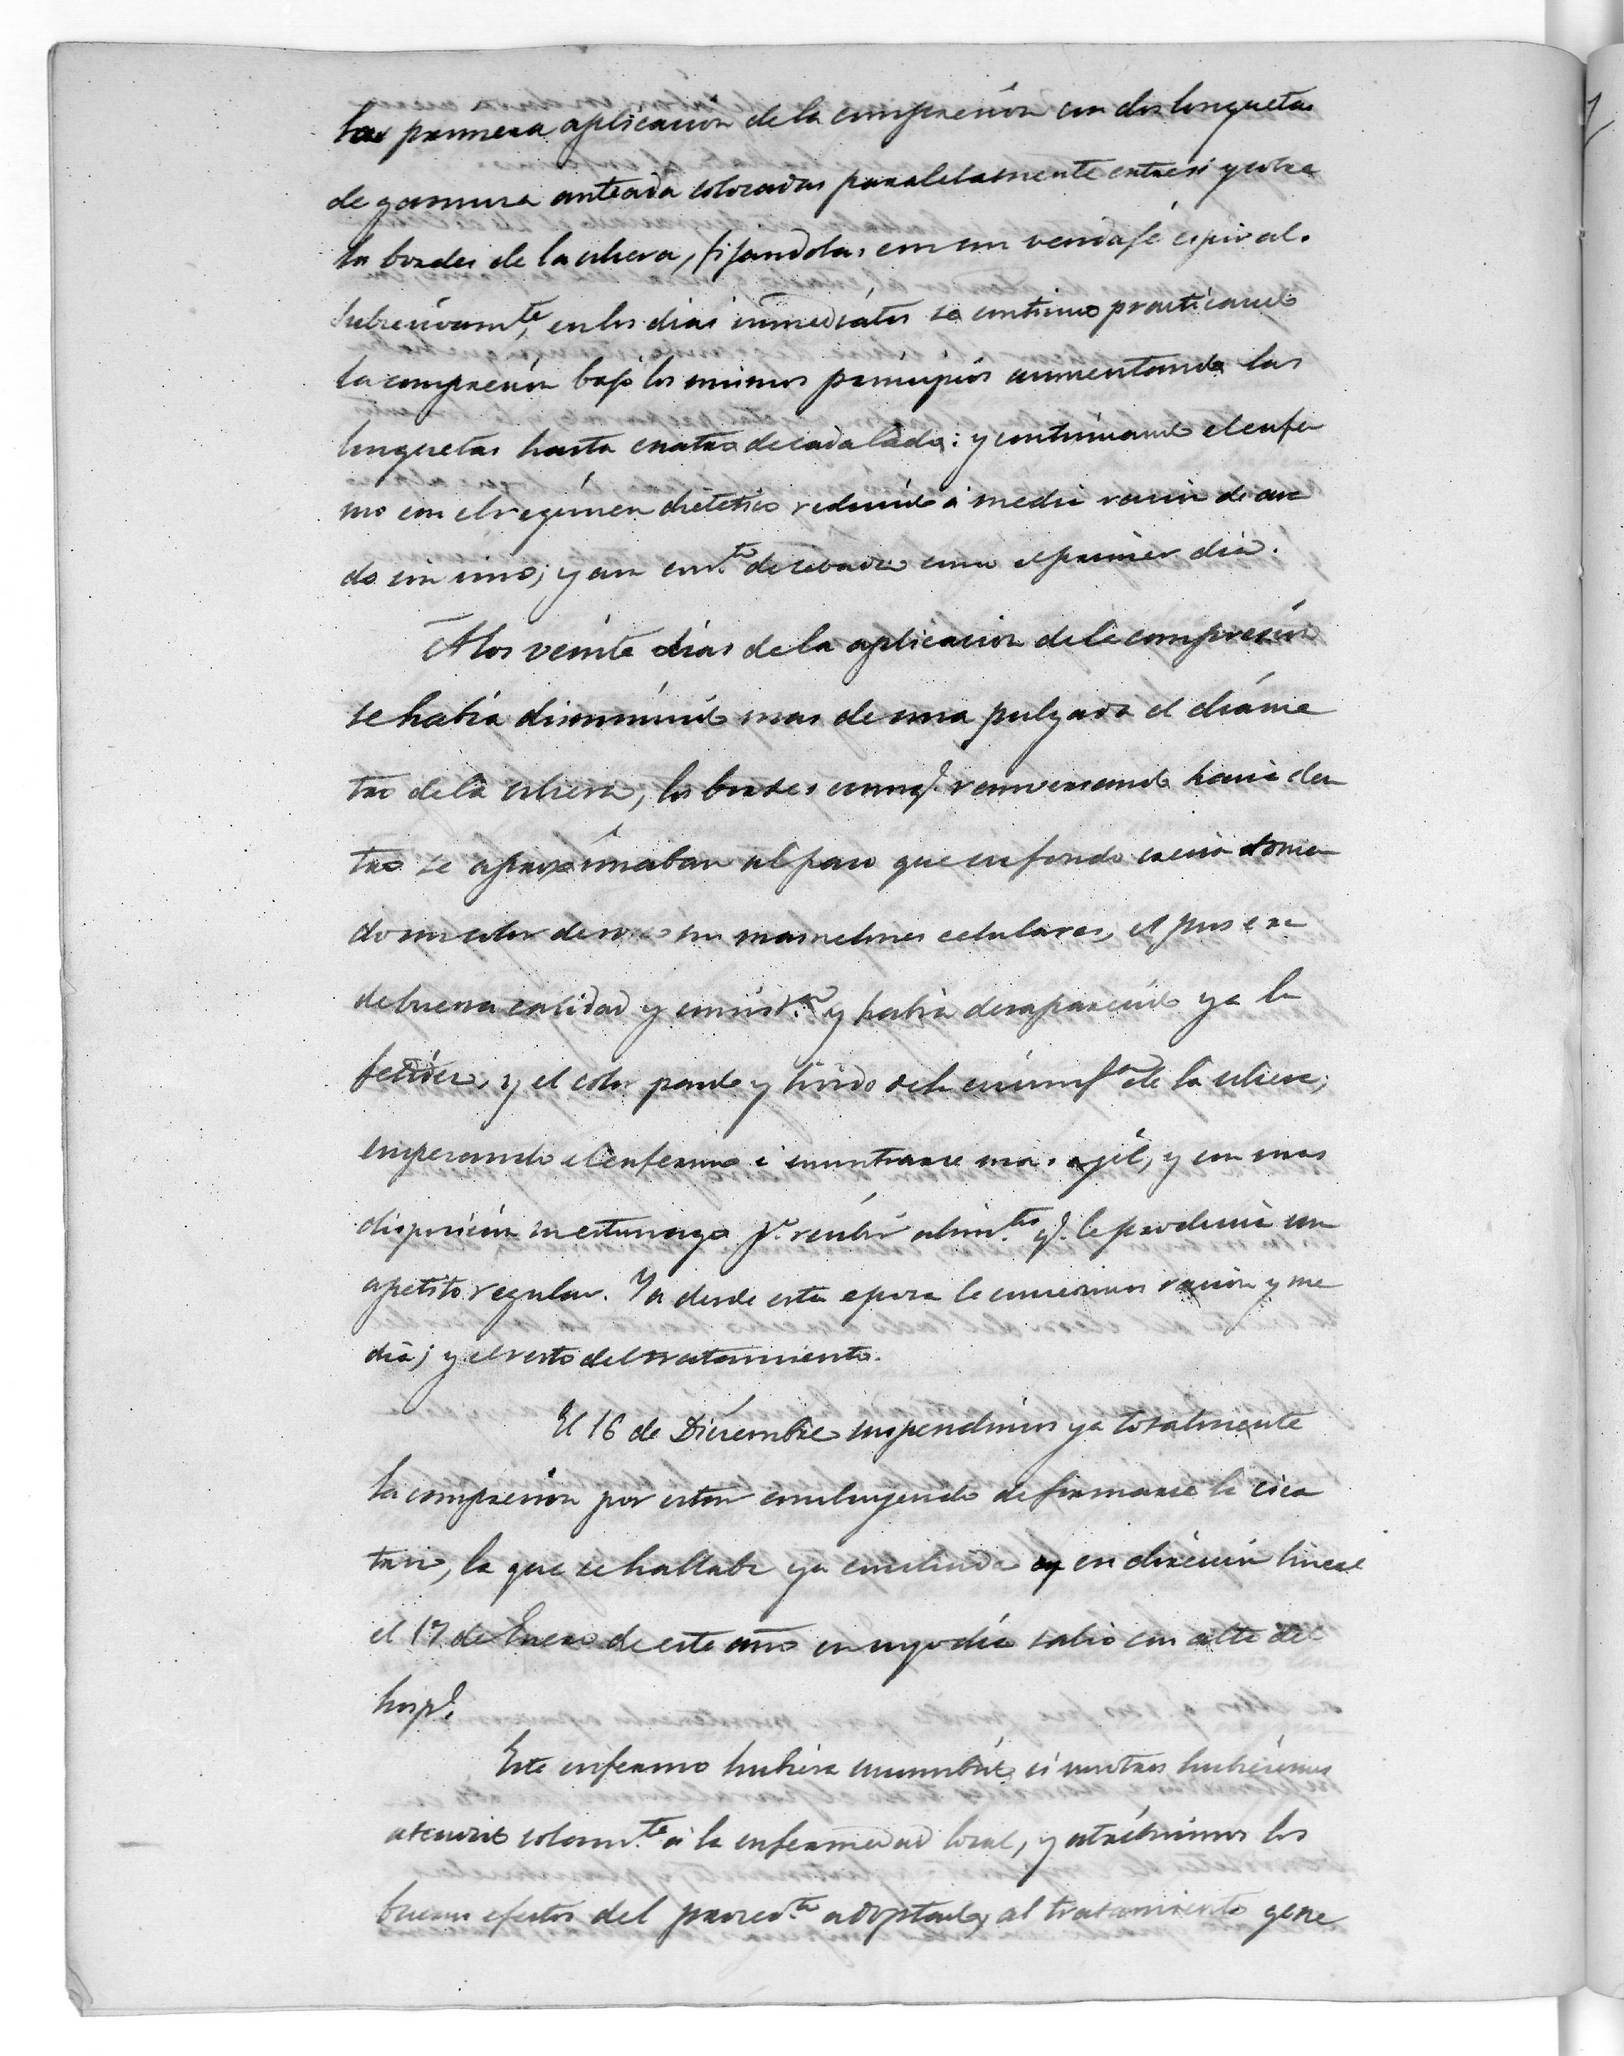 la primera aplicacion de la compresion con dos longuetas
de gamuza anteada colocadas paralelamente entre si y sobre
los bordes de la ulcera, fijandolas con un vendaje espiral.
en los dias inmediatos se continuo practicando
la compresion bajo los mismos principios aumentando las
longuetas hasta cuatro de cada lado: y continuando el enfer
mo con el regimen dietetico reducido á media racion de asa
do sin vino; y un de cebada como el primer dia.
A los veinte dias de la aplicacion de la compresion
se habia disminuido mas de una pulgada el diame
tro de la ulcera, los bordes como q.e hacia den
tro se aproximaban al paso que su fondo crecia toman
do un color de rosa sus mamelones celulares, el pus era
de buena calidad y consist.a y habia desaparecido ya la
fetidez, y el color pardo y livido de la circunf.a de la ulcera;
empezando el enfermo á encontrarse mas agil, y con mas
disposicion su estomago p.a recibir alim.tos q.e le producia un
apetito regular. Ya desde esta epoca le concedimos racion y me
dia; y el resto del tratamiento.
El 16 de Diciembre suspendimos ya totalmente
la compresion por estar concluyendo de formarse la cica
triz, la que se hallaba ya concluida en direccion lineal
el 17 de Enero de este año en cuyo dia salio con alta del
hosp.l
Este enfermo hubiera sucumbido si nosotros hubiéremos
atendido solam.te á la enfermedad local, y atribuimos los
buenos efectos del proced.to adoptado, al tratamiento gene